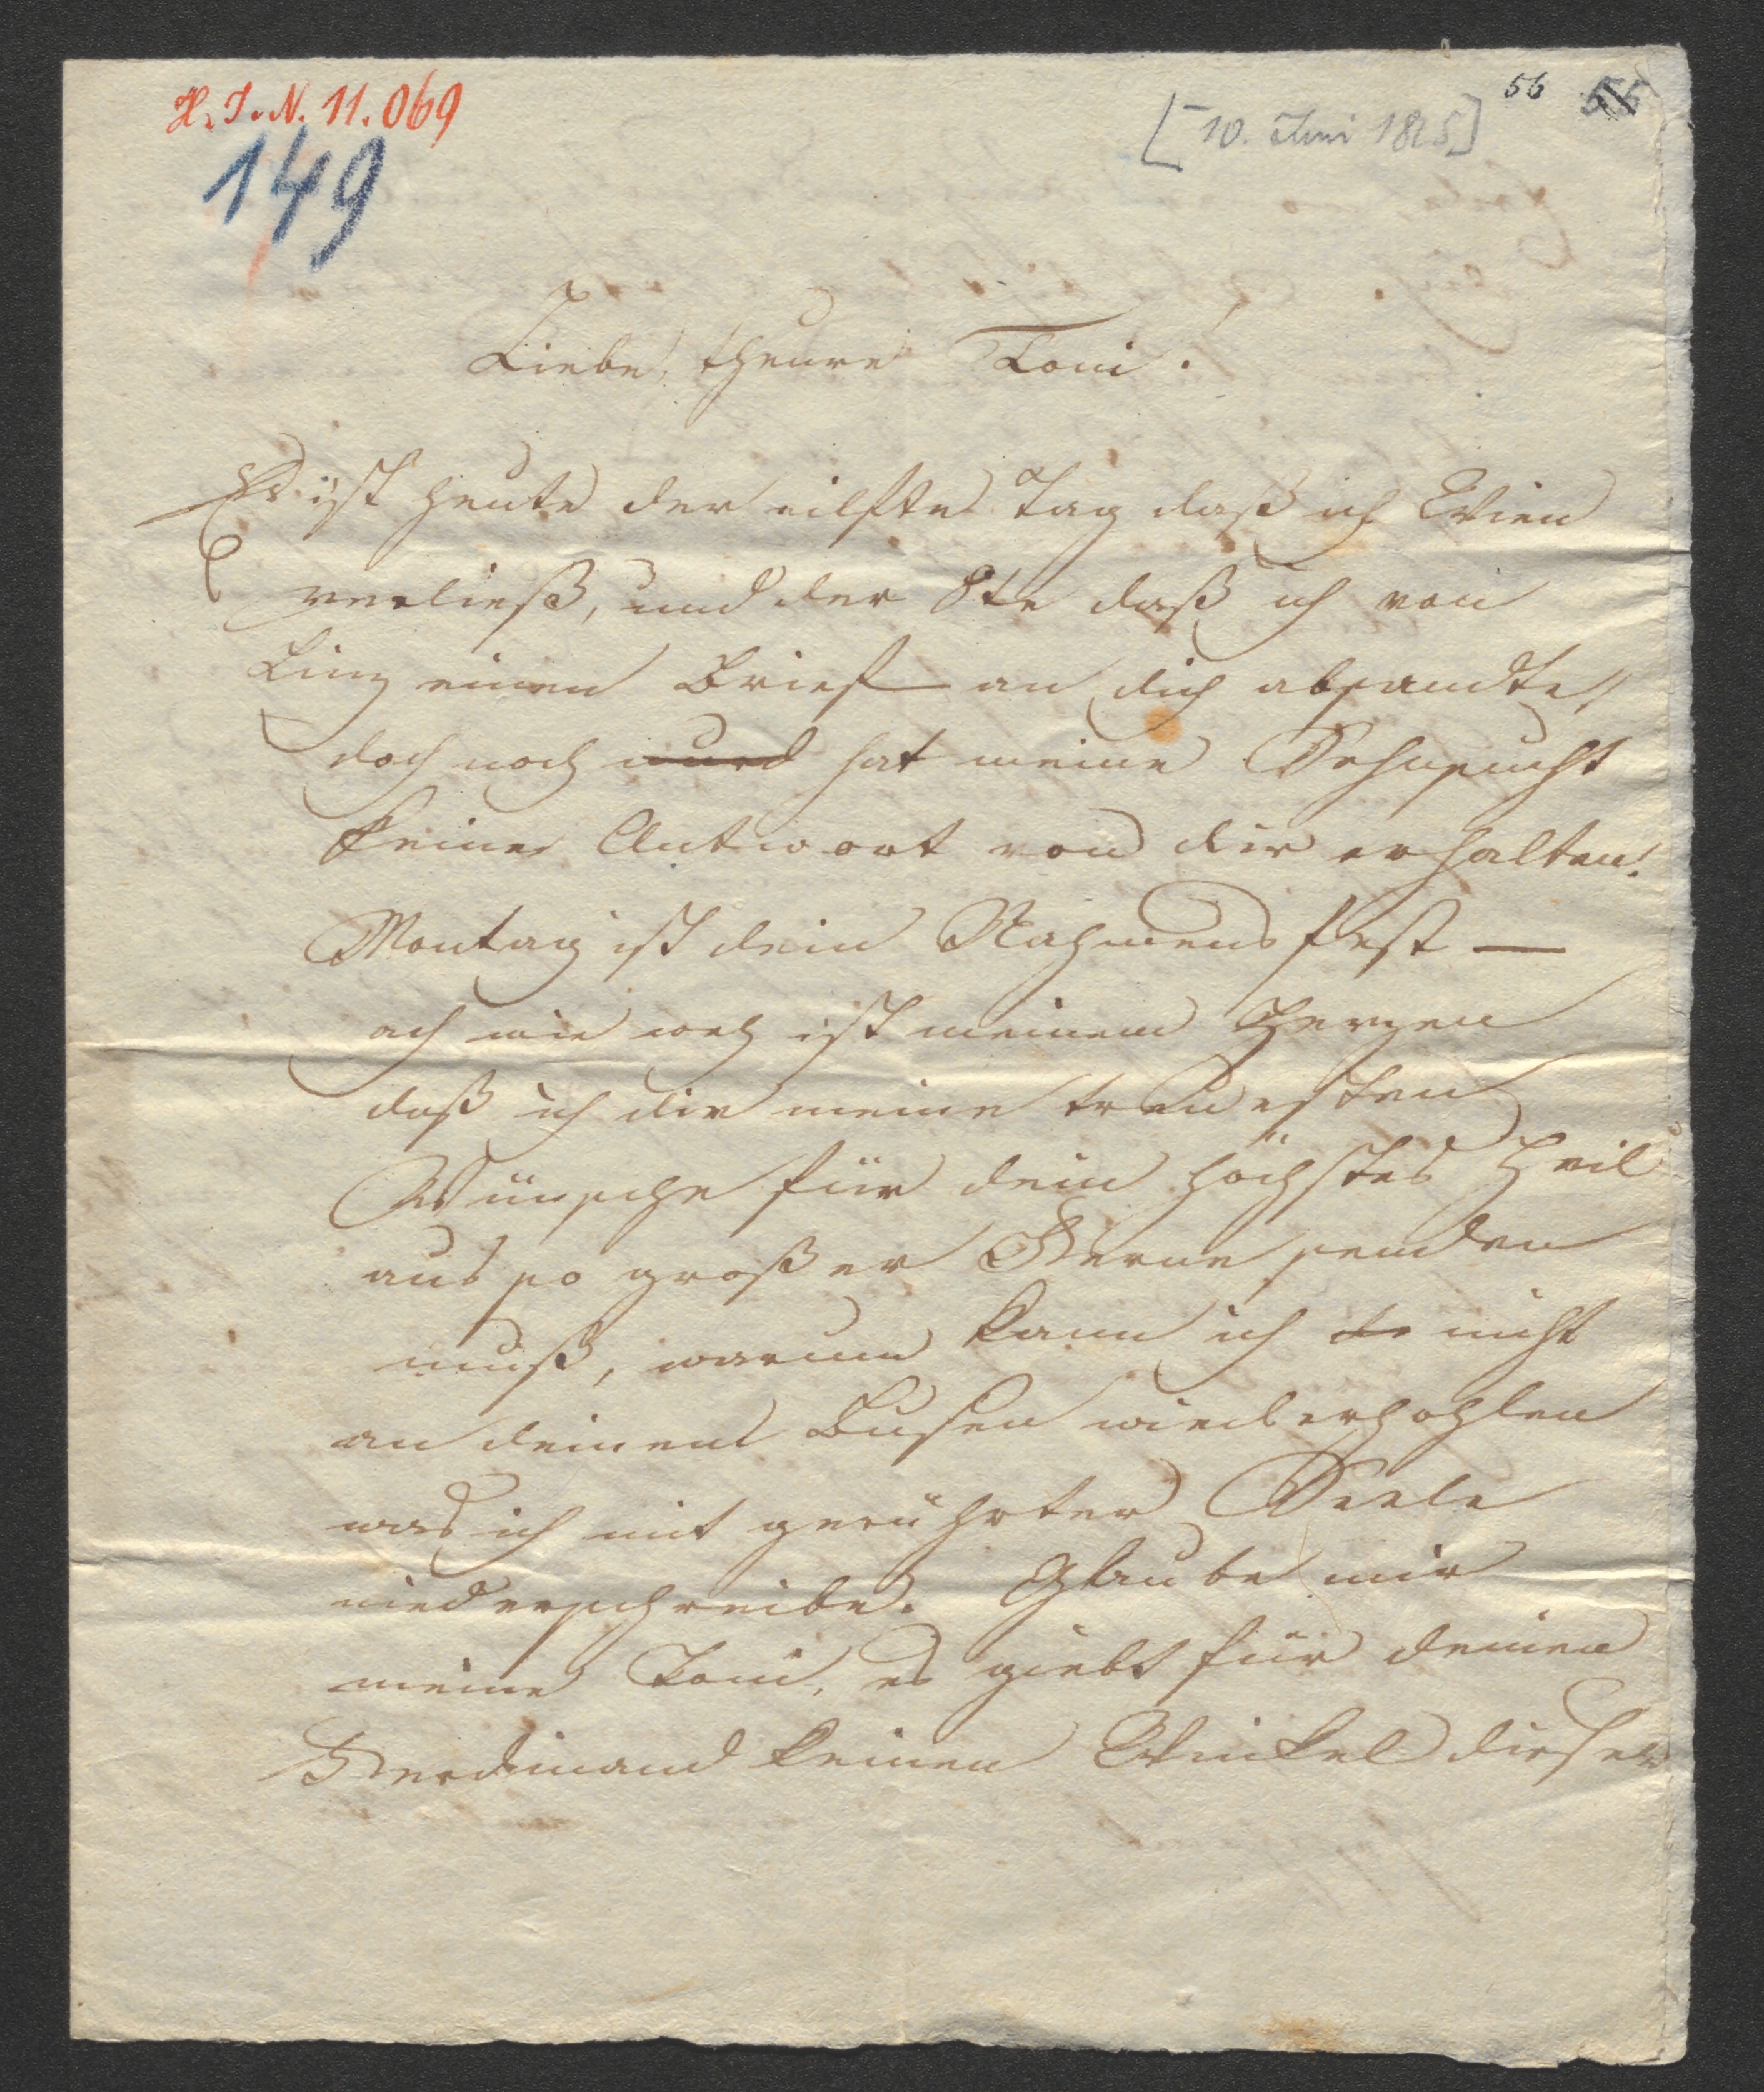 H. I. N. 11.069
149
[10. Juni 1825]
56
55
Liebe, theure Toni!
Es ist heute der eilfte Tag daß ich Wien
verließ, und der 8te daß ich von
Linz einen Brief an dich absandte,
doch noch hat meine Sehnsucht
keine Antwort von dir erhalten!
Montag ist dein Nahmensfest —
ach wie weh ist meinem Herzen
daß ich dir meine treuesten
Wünsche für dein höchstes Heil
aus so großer Ferne senden
muß, warum kann ich nicht
an deinem Busen wiederhohlen
was ich mit gerührter Seele
niederschreibe. Glaube mir
meine Toni, es giebt für deinen
Ferdinand keinen Winkel dieser